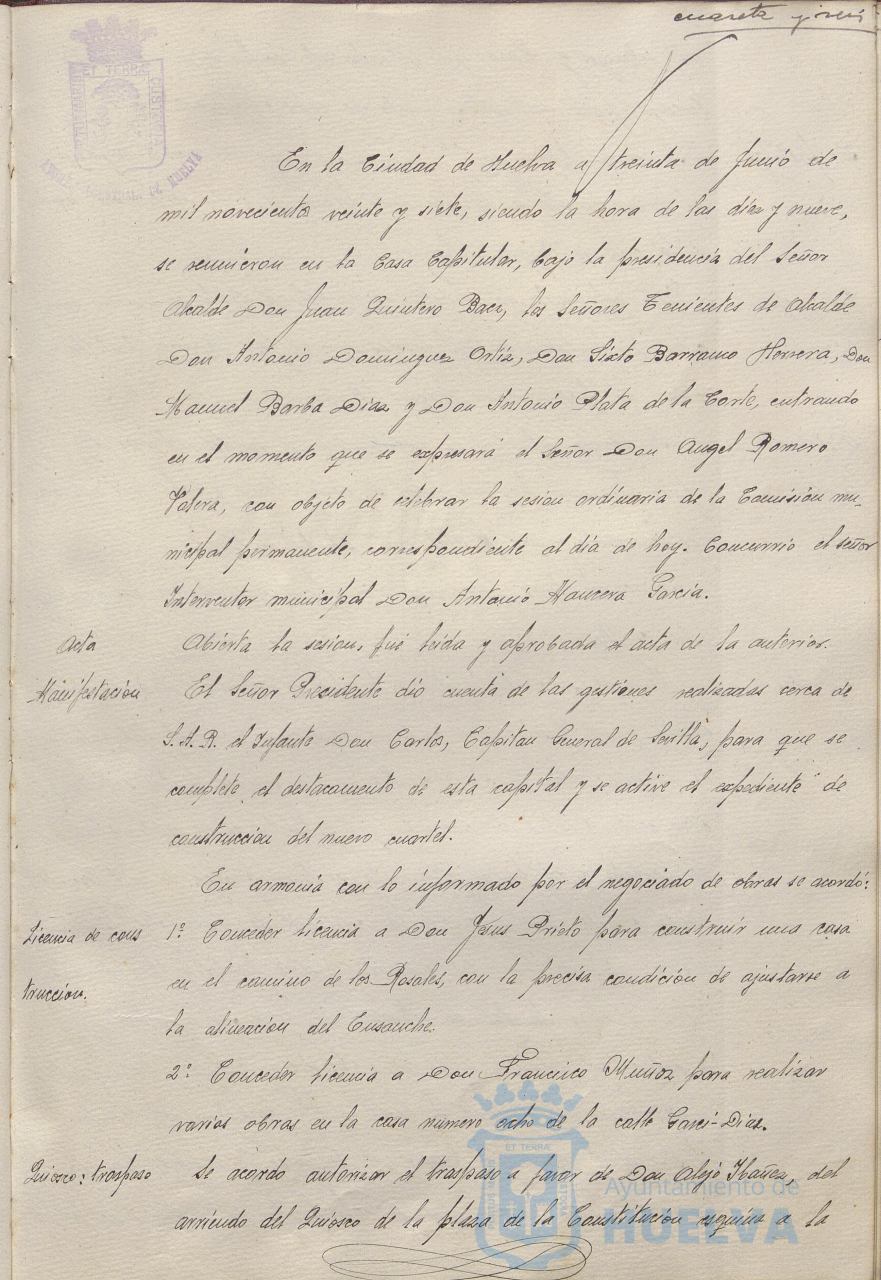 cuareta y seis
ET TERRÆ
En la Ciudad de Huelva a treinta de Junio de
mil novecientos veinte y siete, siendo la hora de las diez y nueve,
se reunieron en la Casa Capitular, bajo la presidencia del Señor
Alcalde Don Juan Quintero Baez, los Señores Tenientes de Alcalde
Don Antonio Dominguez Ortiz, Don Sixto Barranco Herrera, Don
Manuel Barba Diaz y Don Antonio Plata de la Corte, entrando
en el momento que se expresará el Señor Don Angel Romero
Valera, con objeto de celebrar la sesion ordinaria de la Comisión mu-
nicipal permanente, correspondiente al día de hoy. Concurrio el señor
Interventor municipal Don Antonio Mancera Garcia.
Acta Abierta la sesion, fué leida y aprobada el acta de la anterior.
Manifestacion El Señor Presidente dio cuenta de las gestiones realizadas cerca de
S. A. R. el Infante Don Carlos, Capitan General de Sevilla, para que se
complete el destacamento de esta capital y se active el expediente de
construccion del nuevo cuartel.
En armonia con lo informado por el negociado de obras se acordó:
Licencia de cons 1º Conceder licencia a Don Jesus Prieto para construir una casa
trucción. en el camino de los Rosales, con la precisa condición de ajustarse a
la alineacion del Ensanche.
2º Conceder licencia a Don Francisco Muñoz para realizar
varias obras en la casa numero ocho de la calle Garci-Diaz.
Quiosco: traspaso Se acordo autorizar el traspaso a favor de Don Alejo Ibañez, del
arriendo del Quiosco de la plaza de la Constitucion esquina a la
ET TERRÆ
Ayuntamiento de
HUELVA